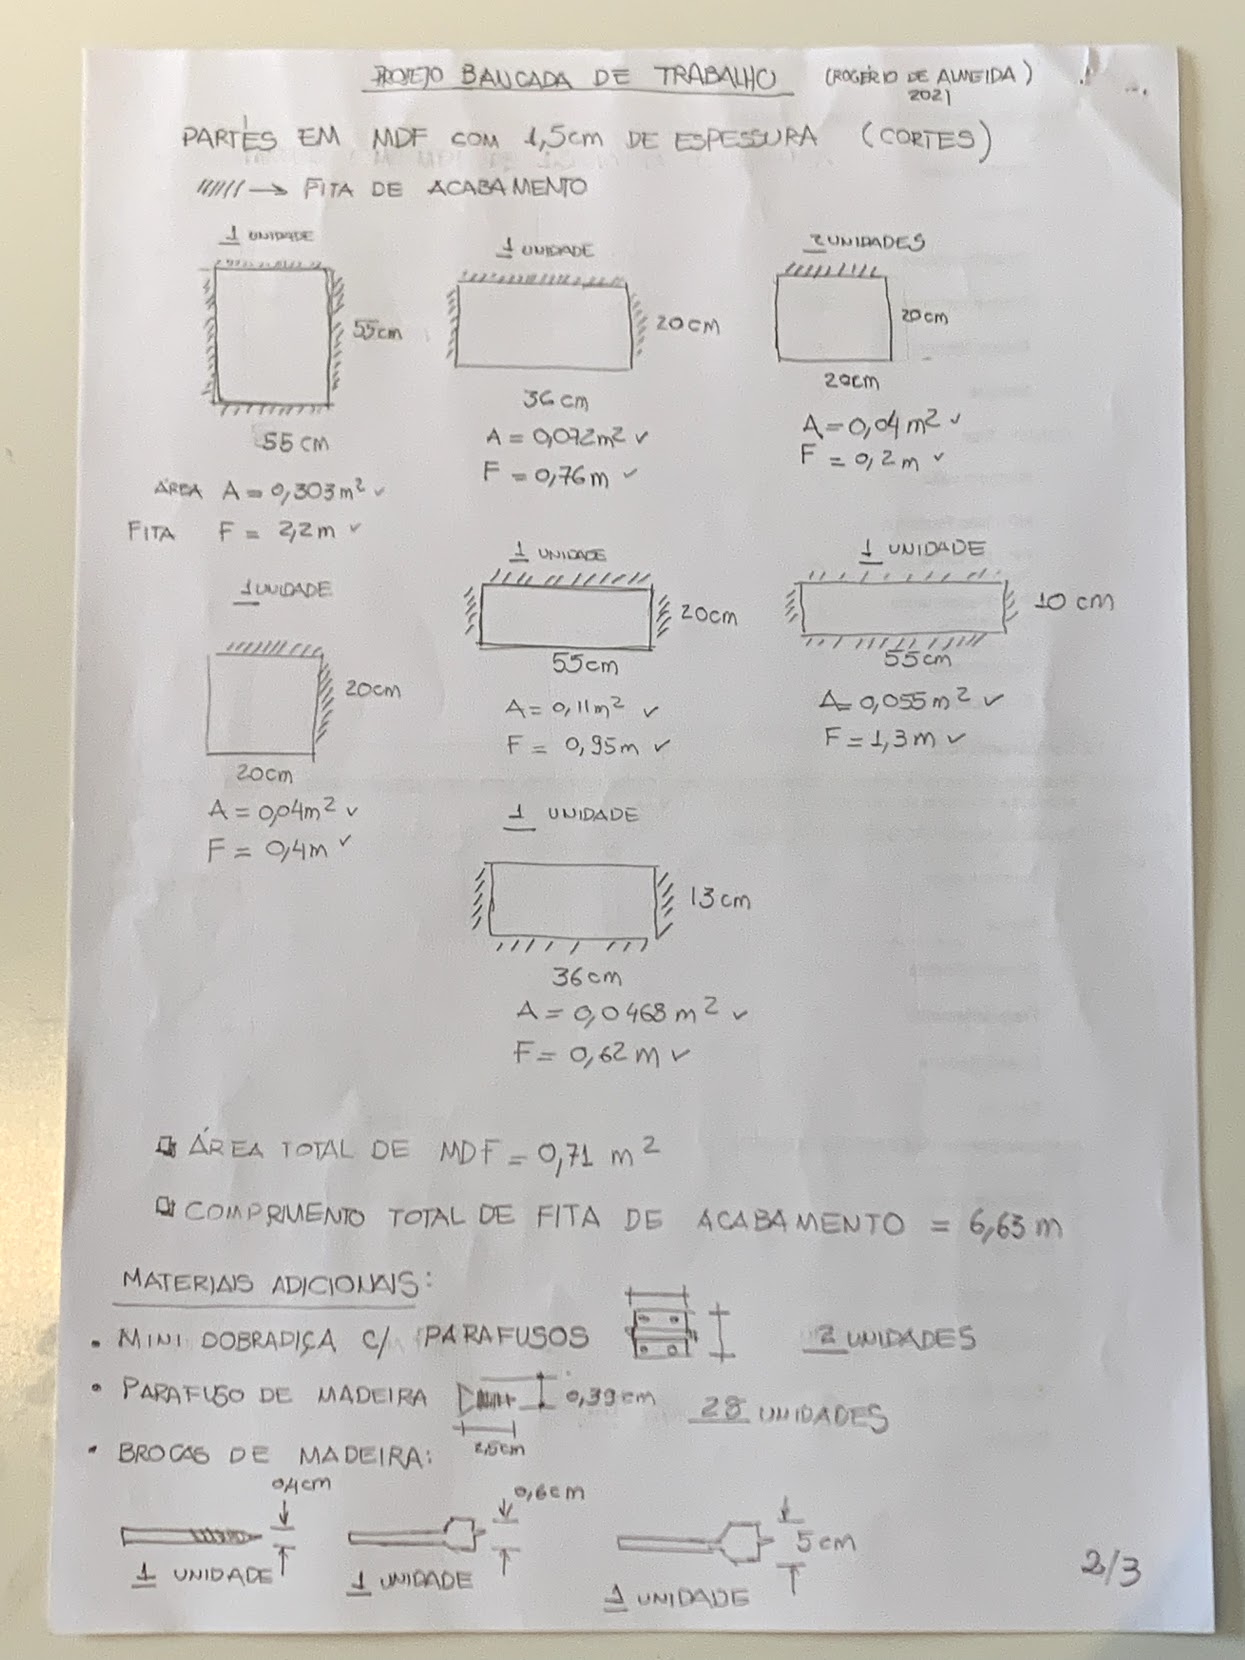 PROJETO BANCADA DE TRABALHO (ROGÉRIO DE ALMEIDA)
2021
PARTES EM MDF COM 1,5cm DE ESPESSURA (CORTES)
→ FITA DE ACABAMENTO
1 UNIDADE
55cm
55 CM
ÁREA A = 0,303 m² ✓
FITA F = 2,2 m ✓
1 UNIDADE
20 CM
36 cm
A = 0,072 m² ✓
F = 0,76 m ✓
2 UNIDADES
20cm
20cm
A = 0,04 m² ✓
F = 0,2 m ✓
1 UNIDADE
20cm
20cm
A = 0,04 m² ✓
F = 0,4 m ✓
1 UNIDADE
20cm
55cm
A = 0,11 m² ✓
F = 0,95 m ✓
1 UNIDADE
10 cm
55cm
A = 0,055 m² ✓
F = 1,3 m ✓
1 UNIDADE
13 cm
36 cm
A = 0,0468 m² ✓
F = 0,62 m ✓
ÁREA TOTAL DE MDF = 0,71 m²
COMPRIMENTO TOTAL DE FITA DE ACABAMENTO = 6,63 m
MATERIAIS ADICIONAIS:
• MINI DOBRADIÇA C/ PARAFUSOS 2 UNIDADES
• PARAFUSO DE MADEIRA 0,39cm 28 UNIDADES
2,5cm
• BROCAS DE MADEIRA:
0,4cm
1 UNIDADE
0,6cm
1 UNIDADE
5 cm
1 UNIDADE
2/3